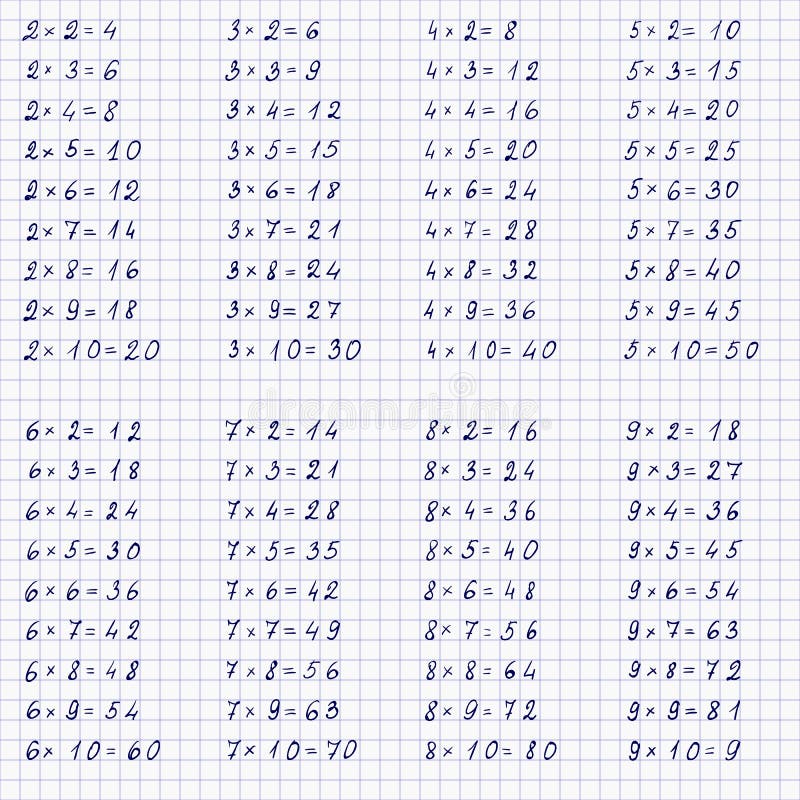 2 × 2 = 4
2 × 3 = 6
2 × 4 = 8
2 × 5 = 10
2 × 6 = 12
2 × 7 = 14
2 × 8 = 16
2 × 9 = 18
2 × 10 = 20
3 × 2 = 6
3 × 3 = 9
3 × 4 = 12
3 × 5 = 15
3 × 6 = 18
3 × 7 = 21
3 × 8 = 24
3 × 9 = 27
3 × 10 = 30
4 × 2 = 8
4 × 3 = 12
4 × 4 = 16
4 × 5 = 20
4 × 6 = 24
4 × 7 = 28
4 × 8 = 32
4 × 9 = 36
4 × 10 = 40
5 × 2 = 10
5 × 3 = 15
5 × 4 = 20
5 × 5 = 25
5 × 6 = 30
5 × 7 = 35
5 × 8 = 40
5 × 9 = 45
5 × 10 = 50
6 × 2 = 12
6 × 3 = 18
6 × 4 = 24
6 × 5 = 30
6 × 6 = 36
6 × 7 = 42
6 × 8 = 48
6 × 9 = 54
6 × 10 = 60
7 × 2 = 14
7 × 3 = 21
7 × 4 = 28
7 × 5 = 35
7 × 6 = 42
7 × 7 = 49
7 × 8 = 56
7 × 9 = 63
7 × 10 = 70
8 × 2 = 16
8 × 3 = 24
8 × 4 = 36
8 × 5 = 40
8 × 6 = 48
8 × 7 = 56
8 × 8 = 64
8 × 9 = 72
8 × 10 = 80
9 × 2 = 18
9 × 3 = 27
9 × 4 = 36
9 × 5 = 45
9 × 6 = 54
9 × 7 = 63
9 × 8 = 72
9 × 9 = 81
9 × 10 = 9
dreamstime